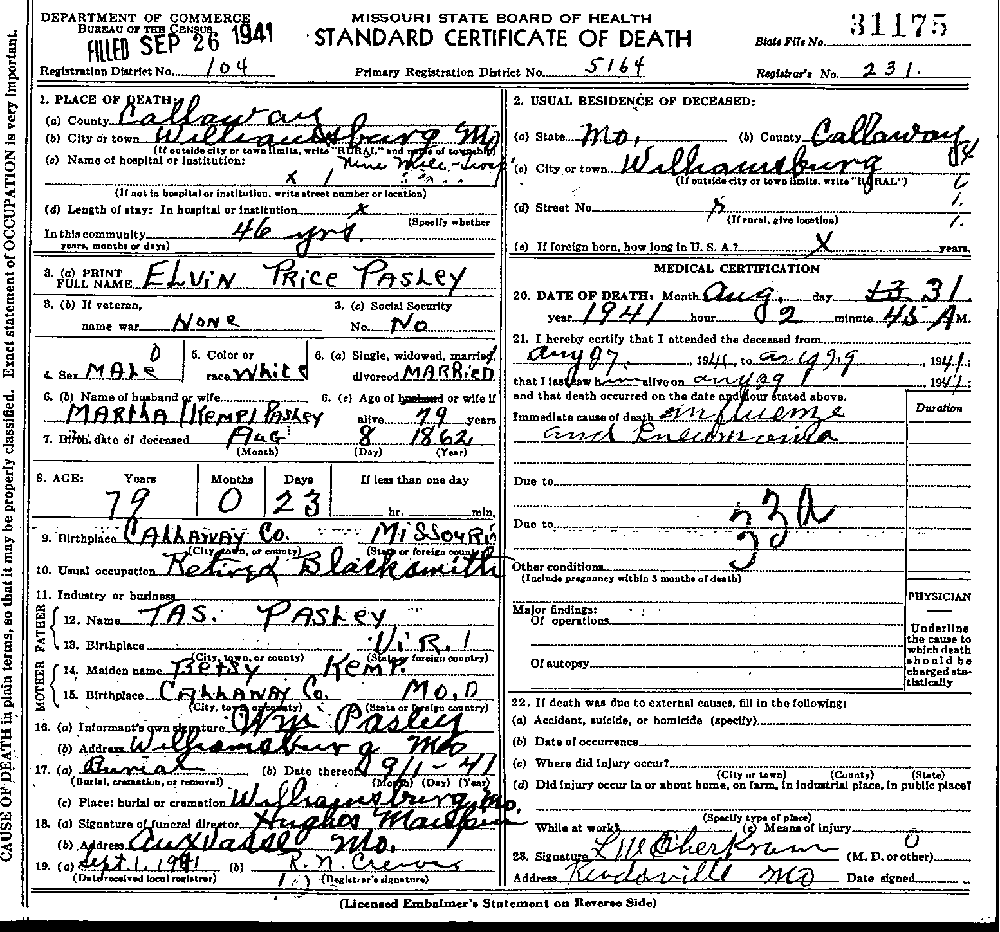 CAUSE OF DEATH in plain terms, so that it may be properly classified. Exact statement of OCCUPATION is very important.
DEPARTMENT OF COMMERCE
BUREAU OF THE CENSUS
FILED SEP 26 1941
MISSOURI STATE BOARD OF HEALTH
STANDARD CERTIFICATE OF DEATH
State File No. 31175
Registration District No. 104 Primary Registration District No. 5164 Registrar's No. 231.
1. PLACE OF DEATH:
(a) County Callaway
(b) City or town Williamsburg Mo
(If outside city or town limits, write "RURAL" and name of township)
(c) Name of hospital or institution: Nine Mile
x 1
(If not in hospital or institution, write street number or location)
(d) Length of stay: In hospital or institution x
(Specify whether
In this community 46 yrs.
years, months or days)
2. USUAL RESIDENCE OF DECEASED:
(a) State Mo. (b) County Callaway
(c) City or town Williamsburg
(If outside city or town limits, write "RURAL")
(d) Street No. x
(If rural, give location)
(e) If foreign born, how long in U. S. A.? X years.
3. (a) PRINT
FULL NAME ELVIN PRICE PASLEY
3. (b) If veteran,
name war NONE
3. (c) Social Security
No. No
4. Sex MALE 0
5. Color or
race White
6. (a) Single, widowed, married,
divorced MARRIED
6. (b) Name of husband or wife
MARTHA (KEMP) PASLEY
6. (c) Age of husband or wife if
alive 79 years
7. Birth date of deceased Aug 8 1862
(Month) (Day) (Year)
8. AGE: Years Months Days If less than one day
79 0 23 hr. min.
9. Birthplace CALLAWAY Co. MISSOURI
(City, town, or county) (State or foreign country)
10. Usual occupation Retired Blacksmith
11. Industry or business
FATHER
12. Name JAS. PASLEY
13. Birthplace VIR. 1
(City, town, or county) (State or foreign country)
MOTHER
14. Maiden name BETSY KEMP.
15. Birthplace CALLAWAY Co. MO. 0
(City, town, or county) (State or foreign country)
16. (a) Informant's own signature Wm Pasley
(b) Address Williamsburg Mo
17. (a) Burial (b) Date thereof 9/1-41
(Burial, cremation, or removal) (Month) (Day) (Year)
(c) Place: burial or cremation Williamsburg, Mo.
18. (a) Signature of funeral director Hughes Maupin
(b) Address Auxvasse Mo.
19. (a) Sept. 1, 1941 (b) R. N. Crews
(Date received local registrar) (Registrar's signature)
MEDICAL CERTIFICATION
20. DATE OF DEATH: Month Aug. day 13 31
year 1941 hour 2 minute 45 A M.
21. I hereby certify that I attended the deceased from
Aug 27, 1941, to Aug 29, 1941;
that I last saw him alive on Aug 29, 1941;
and that death occurred on the date and hour stated above.
Duration
Immediate cause of death influenza
and Pneumonia
Due to
Due to 33a
Other conditions
(Include pregnancy within 3 months of death)
PHYSICIAN
Major findings:
Of operations
Of autopsy
Underline
the cause to
which death
should be
charged sta-
tistically
22. If death was due to external causes, fill in the following:
(a) Accident, suicide, or homicide (specify)
(b) Date of occurrence
(c) Where did injury occur?
(City or town) (County) (State)
(d) Did injury occur in or about home, on farm, in industrial place, in public place?
(Specify type of place)
While at work (e) Means of injury
23. Signature (M. D. or other) 0
Address Mo Date signed
(Licensed Embalmer's Statement on Reverse Side)